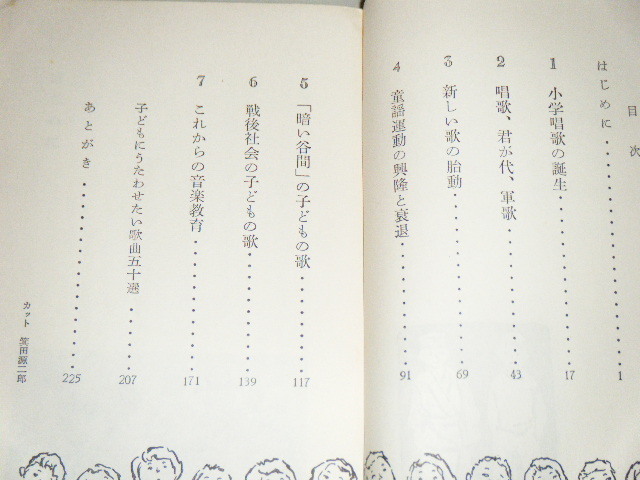 目次
はじめに・・・・・・・・・・・・・・・1
1 小学唱歌の誕生・・・・・・・・・・・17
2 唱歌、君が代、軍歌・・・・・・・・・43
3 新しい歌の胎動・・・・・・・・・・・69
4 童謡運動の興隆と衰退・・・・・・・・91
5 「暗い谷間」の子どもの歌・・・・・・・117
6 戦後社会の子どもの歌・・・・・・・・139
7 これからの音楽教育・・・・・・・・・171
子どもにうたわせたい歌曲五十選・・・・・207
あとがき・・・・・・・・・・・・・・・225
カット 箕田源二郎